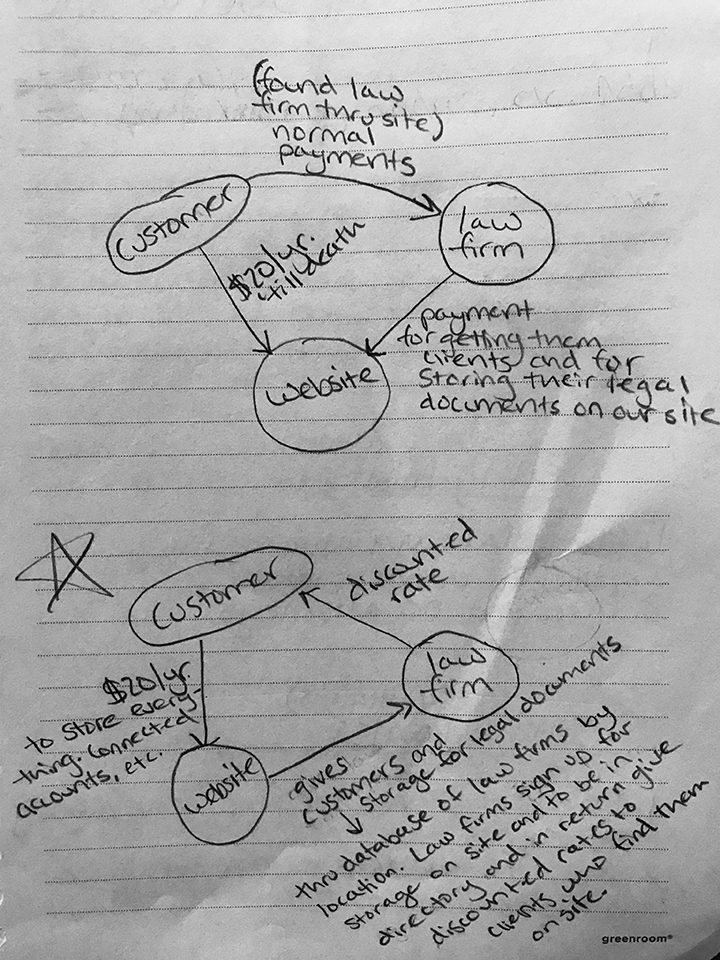 (found law
firm thru site)
normal
payments
customer
law
firm
$20/yr.
till death
payment
for getting them
clients and for
storing their legal
documents on our site
website
customer
discounted
rate
law
firm
$20/yr.
to store every-
thing. connected
accounts, etc.
website
gives
customers and
storage for legal documents
thru database of law firms by
location. Law firms sign up for
storage on site and to be in
directory and in return give
discounted rates to
clients who find them
on site.
greenroom®